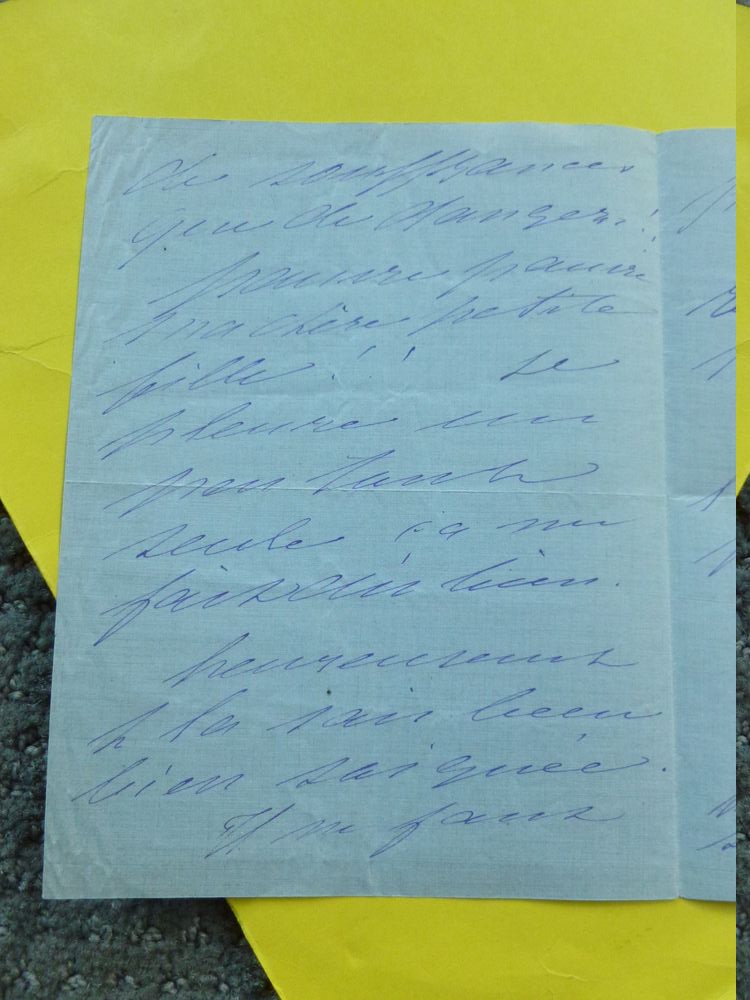 de souffrances
que de dangers!!
pauvre pauvre
ma chère petite
fille!! Je
pleure un
peu toute
seule ça me
fait du bien.
heureusement
je la sais bien
bien soignée.
Il ne faut